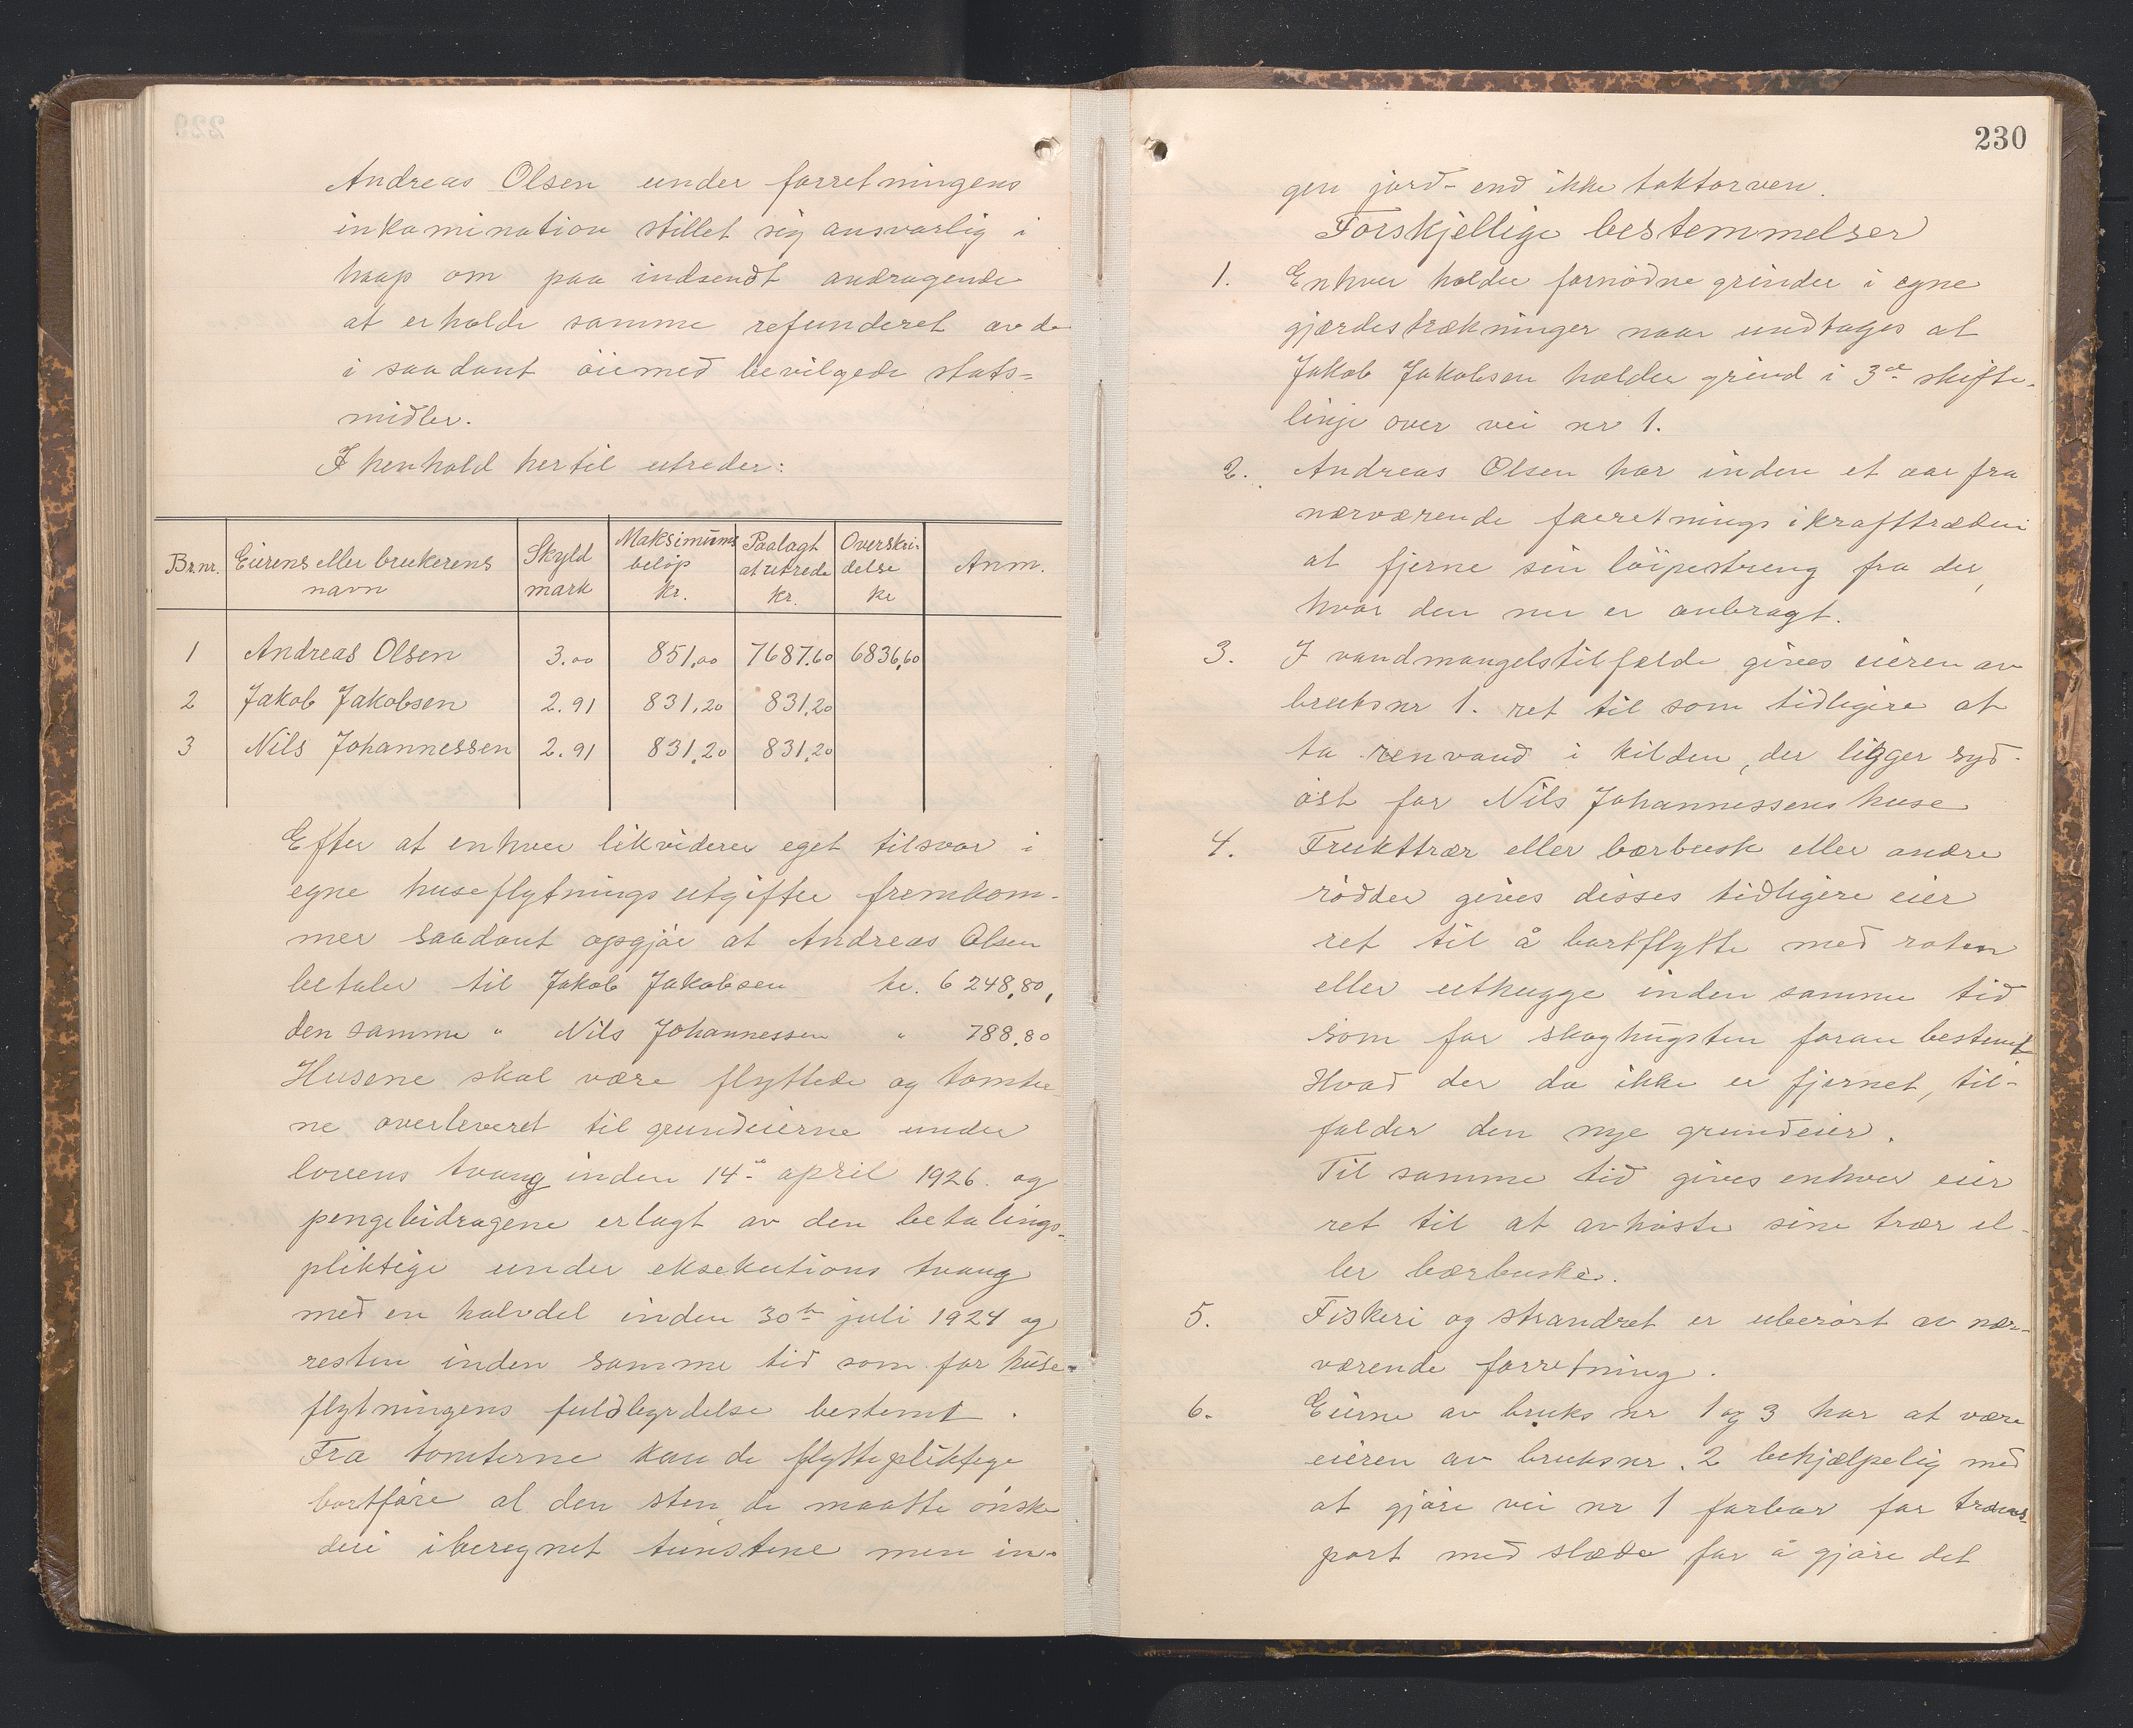 Andreas Olsen under forretningens
inkamination stillet sig ansvarlig i
haap om paa indsendt andragende
at erholde samme refunderet av de
i saadant öiemed bevilgede stats=
midler.
I henhold hertil utreder:
Br.nr. Eierens eller brukerens navn Skyld mark Maksimums beløp kr. Paalagt at utrede kr. Overskridelse kr Anm.
1 Andreas Olsen 3.00 851,00 7687.60 6836,60
2 Jakob Jakobsen 2.91 831,20 831,20
3 Nils Johannessen 2.91 831,20 831,20
Efter at enhver likviderer eget tilsvar i
egne huseflytningsutgifter fremkom-
mer saadant opgjør at Andreas Olsen
betaler til Jakob Jakobsen kr. 6 248,80,
den samme " Nils Johannessen " 788,80
Husene skal være flyttede og tomte-
ne overleveret til grundeierne under
lovens tvang inden 14de april 1926. og
pengebidragene erlagt av den betalings-
pliktige under eksekutions tvang
med en halvdel inden 30te juli 1924 og
resten inden samme tid som for huse-
flytningens fuldbyrdelse bestemt.
Fra tomterne kan de flyttepliktige
bortføre al den sten de maatte ønske
deri iberegnet tunstene men in-
230
gen jord- end ikke taktorven.
Forskjellige bestemmelser
1. Enhver holder fornødne grinder i egne
gjærdestrækninger naar undtages at
Jakob Jakobsen holder grind i 3de skifte-
linje over vei nr 1.
2. Andreas Olsen har inden et aar fra
nærværende forretnings ikrafttræden
at fjerne sin löipestreng fra der,
hvor den nu er anbragt.
3. I vandmangelstilfælde gives eieren av
bruksnr 1. ret til som tidligere at
ta renvand i kilden, der ligger syd-
øst for Nils Johannessens huse
4. Frukttrær eller bærbusk eller andre
rødder gives disses tidligere eier
ret til å bortflytte med roten
eller uthugge inden samme tid
som for skoghugsten foran bestemt
Hvad der da ikke er fjernet, til-
falder den nye grundeier.
Til samme tid gives enhver eier
ret til at avhøste sine trær el-
ler bærbuske.
5. Fiskeri og strandret er uberørt av nær-
værende forretning.
6. Eierne av bruks nr 1 og 3 har at være
eieren av bruksnr. 2 behjælpelig med
at gjøre vei nr 1 farbar for trans-
port med slæde for å gjøre det